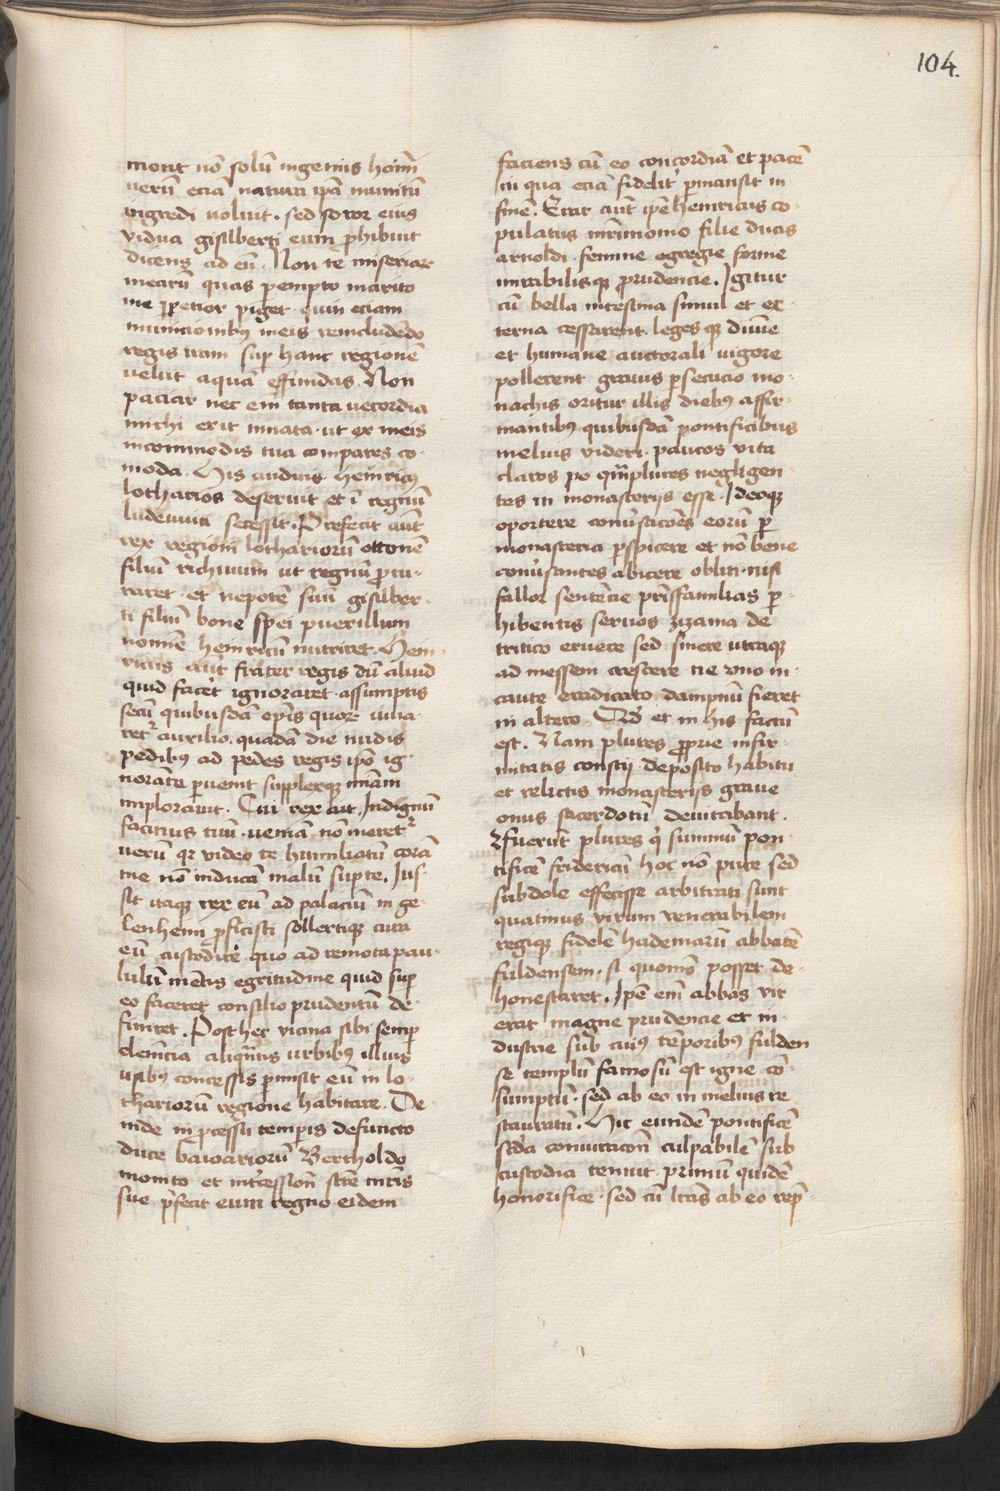 104.
mont nō solū ingenijs hoīm
verū eciā natura ip̄a munitū
ingredi uoluit. sed soror eius
vidua gisilberti eum ꝓhibuit
dicens ad eū. Non te miseriaꝝ
mearū quas ꝑempto marito
me ꝑpetior piget quin eciam
municionibꝰ meis reincludēdo
regis iram suꝑ hanc regionē
velut aquā effundas. Non
paciar nec em̄ tanta vecordia
michi erit innata. ut ex meis
incommodis tua compares co-
moda. His auditis heinricꝰ
lotharios deseruit et ī regnū
ludewici secessit. Prefecit aūt
rex regioni lothariorū ottonē
filiū richwini ut regnū ꝓcu-
raret et nepotē suū gisilber-
ti filiū bone spei puerillum
nomīe heinricū nutriret. Hein-
ricus aūt frater regis dū aliud
quid facēt ignoraret. assumptis
secū quibusdā ep̄is quoꝝ iuua-
retᷣ auxilio. quadā die nudis
pedibꝰ ad pedes regis ip̄o ig-
norāte ꝑuenit supplexqꝫ uniam
implorauit. Cui rex ait. Indignū
facinus tuū. veniā nō meretᷣ
verū qꝛ video te humiliatū corā
me nō inducā malū suꝑ te. Jus-
sit itaqꝫ rex eū ad palaciū in ge-
lenheim ꝓficisci sollertiqꝫ cura
eū custodire quo ad remota pau-
lulū mētis egritudine quid suꝑ
eo faceret consilio prudentū de-
finiret. Post hec vicina sibi semꝑ
clemēcia aliqūtis urbibꝰ illius
usibꝰ concessis ꝑmisit eū in lo-
thariorū regione habitare. De-
inde in ꝓcessu temꝑis defuncto
duce baioariorū Bertholdo
monito et intcession̄ scēe mr̄is
sue p̄fecit eum regno eidem
faciens cū eo concordiā et pacē
in qua eciā fidelit ꝑmansit in
finē. Erat aūt ip̄e heinricus co-
pulatus mr̄imonio filie ducis
arnoldi femine egregie forme
mirabilisqꝫ prudencie. Igitur
cū bella intestina simul et ex-
terna cessarent. leges qꝫ diuīe
et humane auctorali uigore
pollerent grauis ꝑsecucio mo-
nachis oritur illis diebꝰ affir-
mantibꝰ quibusdā pontificibus
melius videri. paucos vita
claros p̄ qm̄plures negligen-
tes in monasterijs esse. Ideoqꝫ
oportere conūsacioēs eorū ꝑ
monasteria ꝑspicere et nō bene
conūsantes abicere obliti. nisi
fallor sentēcie pr̄isfamilias ꝓ-
hibentis seruos zizania de
tritico eruere sed sinere utraqꝫ
ad messem crescere ne vno in-
caute eradicato dampnū fieret
in altero. Qd̄ et in his factū
est. Nam plures ꝓprie infir-
mitatis conscij deposito habitu
et relictis monasterijs graue
onus sacerdotū deuitabant.
Fuerūt plures qͥ summū pon-
tificē fridericū hoc nō pure sed
subdole effecisse arbitrati sunt
quatinus virum venerabilem
regiqꝫ fidelē hademarū abbatē
fuldensem. si quomō posset de-
honestaret. Ip̄e em̄ abbas vir
erat magne prudencie et in-
dustrie sub cuiꝰ tēporibꝰ fulden
se templū famosū est igne cō-
sumptū. sed ab eo in melius re
stauratū. Hic eundē pontificē
scd̄a coniuracōni culpabilē sub
custodia tenuit primū quidē
honorifice. sed cū lr̄as ab eo rep̄-